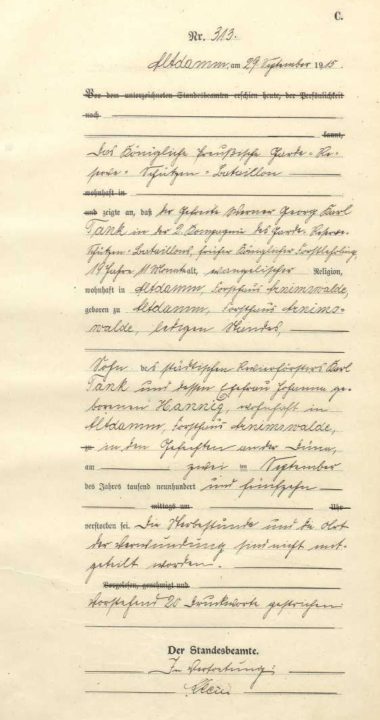 C.
Nr. 313.
Altdamm, am 29 September 1915.
Vor dem unterzeichneten Standesbeamten erschien heute, der Persönlichkeit
nach
kannt,
Das Königliche Preußische Garde-Re-
serve-Schützen-Bataillon
wohnhaft in
und zeigte an, daß der Gefreite Werner Georg Karl
Tank in der 2. Kompagnie des Garde-Reserve-
Schützen-Bataillons, früher Königlicher Forstlehrling
19 Jahre 11 Monat alt, evangelischer Religion,
wohnhaft in Altdamm, Forsthaus Arnimswalde,
geboren zu Altdamm, Forsthaus Arnims-
walde, ledigen Standes,
Sohn des städtischen Revierförsters Karl
Tank und dessen Ehefrau Johanna ge-
borenen Hannig, wohnhaft in
Altdamm, Forsthaus Arnimswalde,
zu in den Gefechten an der Düna,
am zwei im September
des Jahres tausend neunhundert und fünfzehn
mittags um Uhr
verstorben sei. Die Sterbestunde und die Ort
der Verwundung sind nicht mit-
geteilt worden.
Vorgelesen, genehmigt und
Vorstehend 20 Druckworte gestrichen
Der Standesbeamte.
In Vertretung: